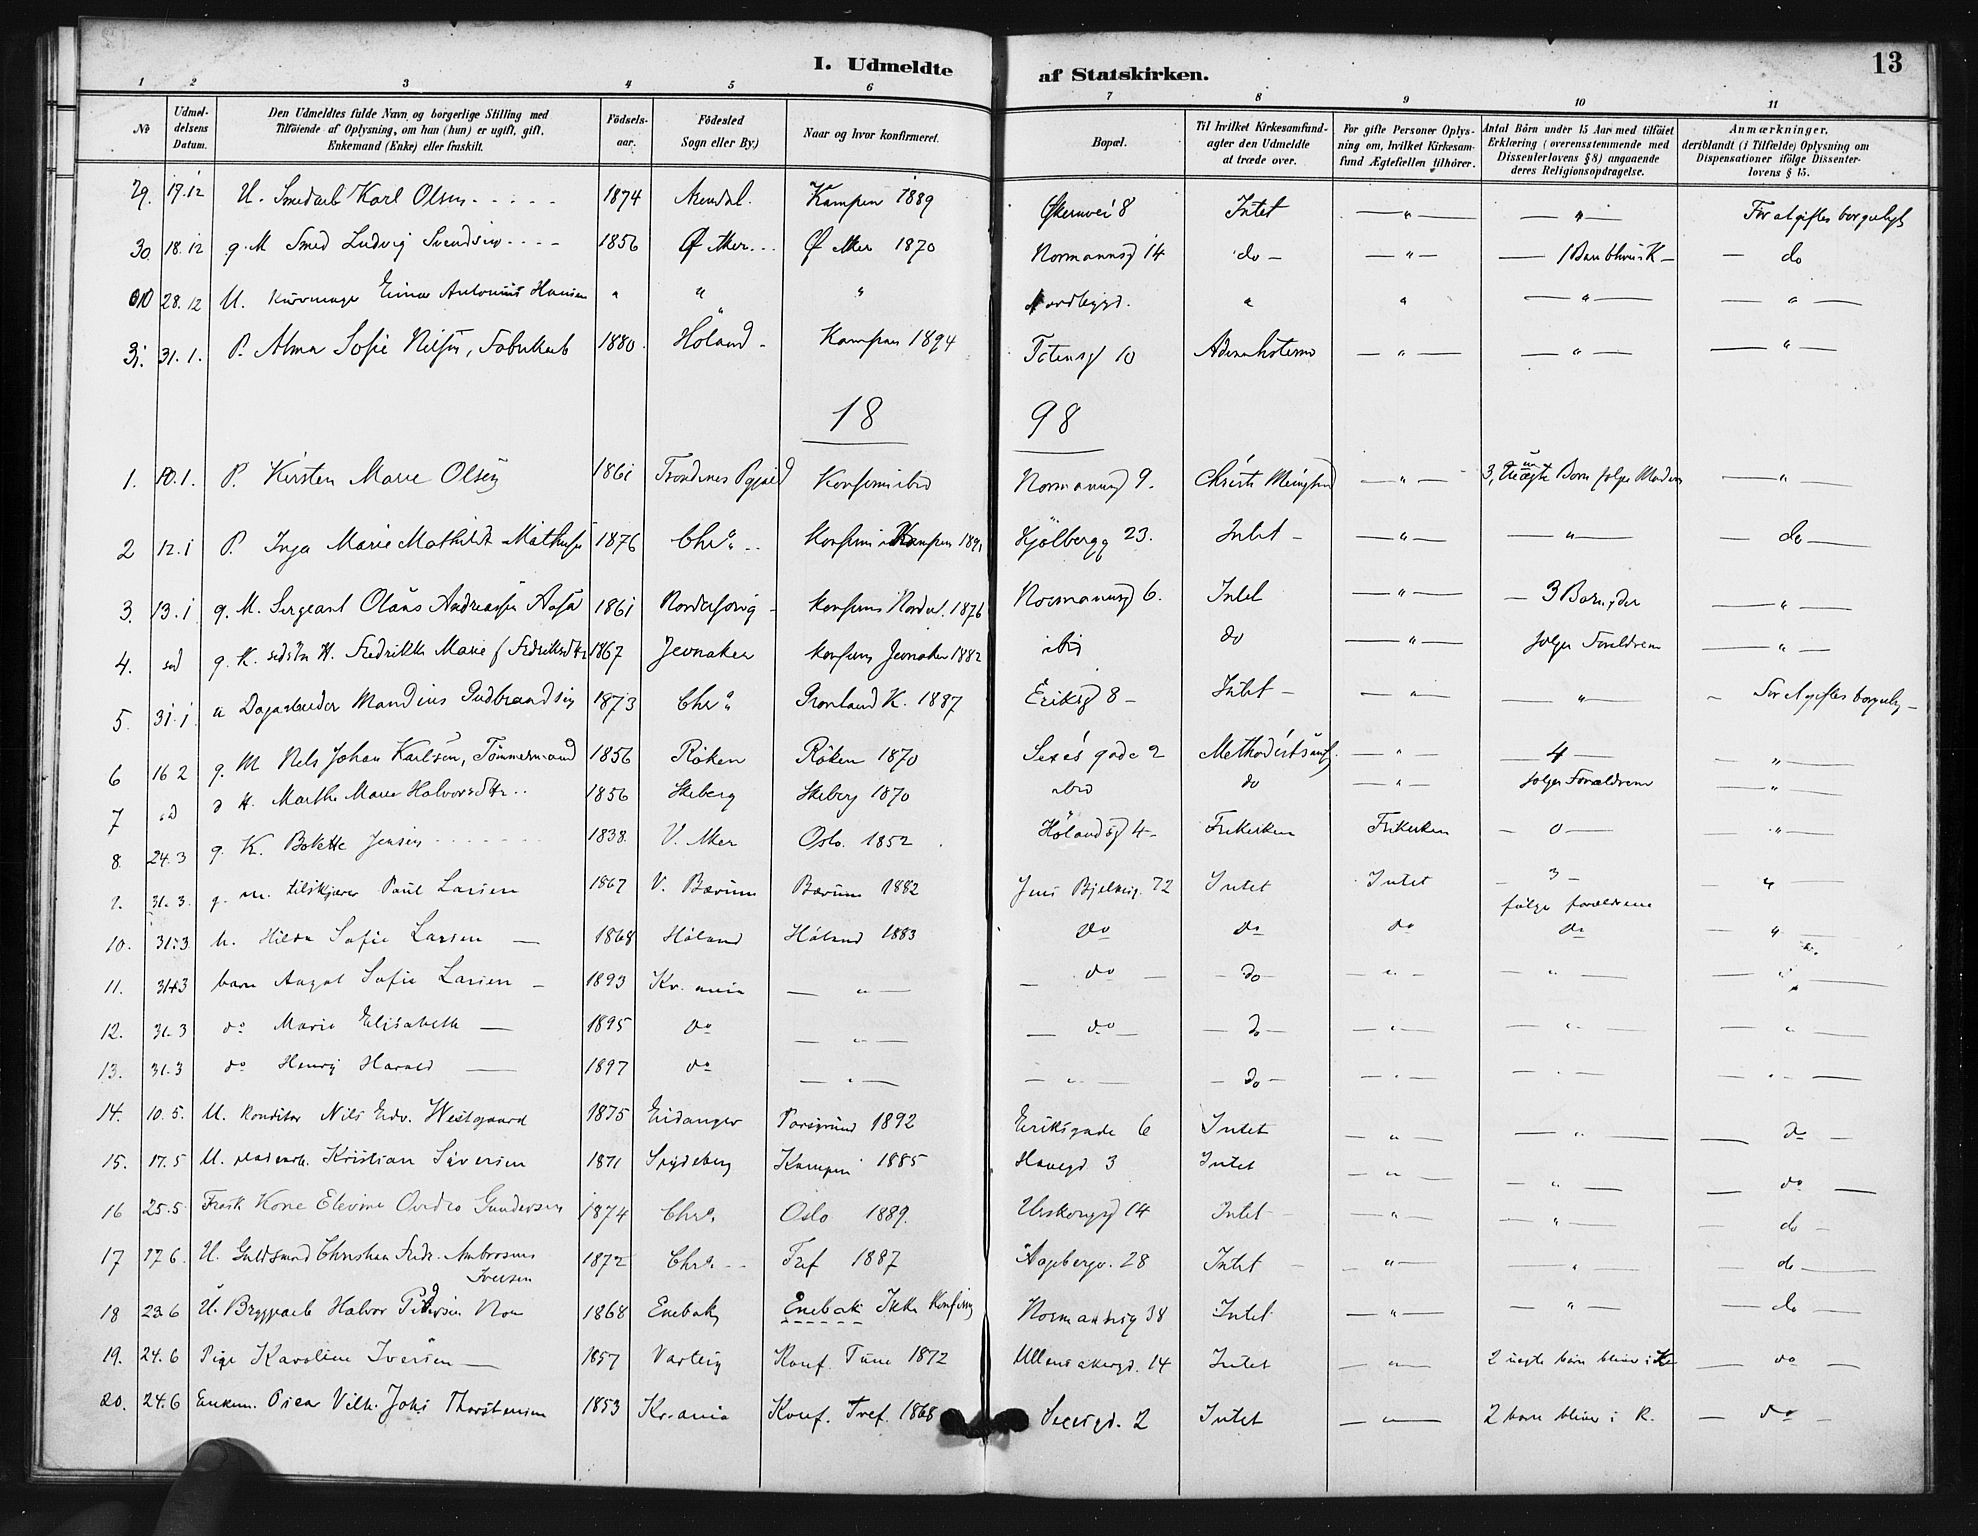 I. Udmeldte af Statskirken. 13
1 2 3 4 5 6 7 8 9 10 11
No
Udmeldelsens Datum.
Den Udmeldtes fulde Navn og borgerlige Stilling med Tilföiende af Oplysning, om han (hun) er ugift, gift, Enkemand (Enke) eller fraskilt.
Födselsaar.
Födested Sogn eller By.)
Naar og hvor konfirmeret.
Bopæl.
Til hvilket Kirkesamfundagter den Udmeldte at træde over.
For gifte Personer Oplysning om, hvilket Kirkesamfund Ægtefællen tilhörer.
Antal Börn under 15 Aar med tilföiet Erklæring (overensstemmende med Dissenterlovens § 8) angaaende deres Religionsopdragelse.
Anmærkninger, deriblandt (i Tilfælde) Oplysning om Dispensationer ifölge Dissenterlovens § 15.
29. 17.12 U. Smedarb Karl Olsen 1874 Arendal. Kampen 1889 Økernvei 8 Intet — " — — " — For at giftes borgerligt
30. 18.12 g. M Smed Ludvig Svendsen 1856 Ø Aker Ø Aker 1870 Normannsg 14 do — " — 1 Barn K — do
28.12 U. Einar Antonius Hansen " " " " " — " — — " —
31. 31.1. P. Alma Sofie Nilsen, Fabrikarb 1880. Höland Kampen 1894 Totensg 10 — " — — " — — " —
18 98
1. 10.1. P. Kirsten Marie Olsen 1861 Trondenes Pgjeld Konfirm ibid Normannsg 9. — " — 3, uægte Born folge Moderen — " —
2 12.1 P. Inga Marie Mathilde Mathisen 1876 Chra Konfirm Kampen 1891 Kjölbergg 23. Intet — " — — " — do
3. 13.1 g. M. Sergeant Olaus Andreassen Aasa 1861 Konfirm 1876 Normannsg 6. Intet — " — 3 Born, der — " —
4. g. K. Fredrikke Marie f Fredriksdtr 1867 Jevnaker Konfirm Jevnaker 1882 ibid do — " — folger Foreldrene — " —
5. 31.1 u Dagarbeider Mandius Gudbrandsen 1873 Chra Gronland K. 1887 Eriksg 8 Intet — " — — " — For at giftes borgerlig
6 16 2 g. M Nels Johan Karlsen, Tömmermand 1856 Röken Röken 1870 Sexes gade 2 Methodistsamf. — " — 4 — " —
7 Marthe Marie Halvorsdtr 1856 Skeberg Skeberg 1870 ibid do — " — folger Forældrene — " —
8. 24.3 g. K. Bolette Jensen 1838. V. Aker Oslo. 1852 Hölandsg 4 Frikirken Frikirken — 0 — — " —
9. 31.3. g. m. tilskjærer Paul Larsen 1867 V. Bærum Bærum 1882 Jens Bjelkesg. 72 Intet Intet 3 fölger forældrene — " —
10. 31.3 h. Hilda Sofie Larsen 1868 Höland Höland 1883 do do do do — " —
11. 31.3 barn Aagot Sofie Larsen 1893 Kr.ania — " — do do — " — — " — — " —
12. 31.3 do Marie Elisabeth 1895 do — " — do do — " — — " — — " —
13. 31.3 do Henry Harald 1897 do — " — — " — do — " — — " — — " —
14. 10.5. U. Konditor Nils Edv. Westgaard 1875 Eidanger Porsgrund 1892 Eriksgade 6 Intet — " — — " — do
15. 17.5 U. Kristian Siversen 1871 Spydeberg Kampen 1885 Havegd 3 Intet — " — — " — do
16 25.5. Frask Kone Elevine Gundersen 1874 Chra Oslo 1889. Urskougsg 14 Intet — " — — " — do
17 17.6. U. Guldsmed Christian Fredr. Ambrosius Iversen 1872 Chra Tref 1887 Aagebergv. 28 Intet — " — — " — do
18 23.6 U. Bryggearb Halvor Pedersen 1868 Enebak Enebak Ikke Konfirm Normannsg 38 Intet — " — — " — do
19. 24.6 Pige Karoline Iversen 1857 Varteig Konf. Tune 1872 Ullensakergd. 14 Intet — " — 2 uegte börn bliver i K do
20. 24.6 Enkem. Oscar Vilh. Johs Thorstensen 1853 Kr.ania Konf. Tref. 1868 Sexesgd. 2 Intet — " — 2 barn bliver i K. do